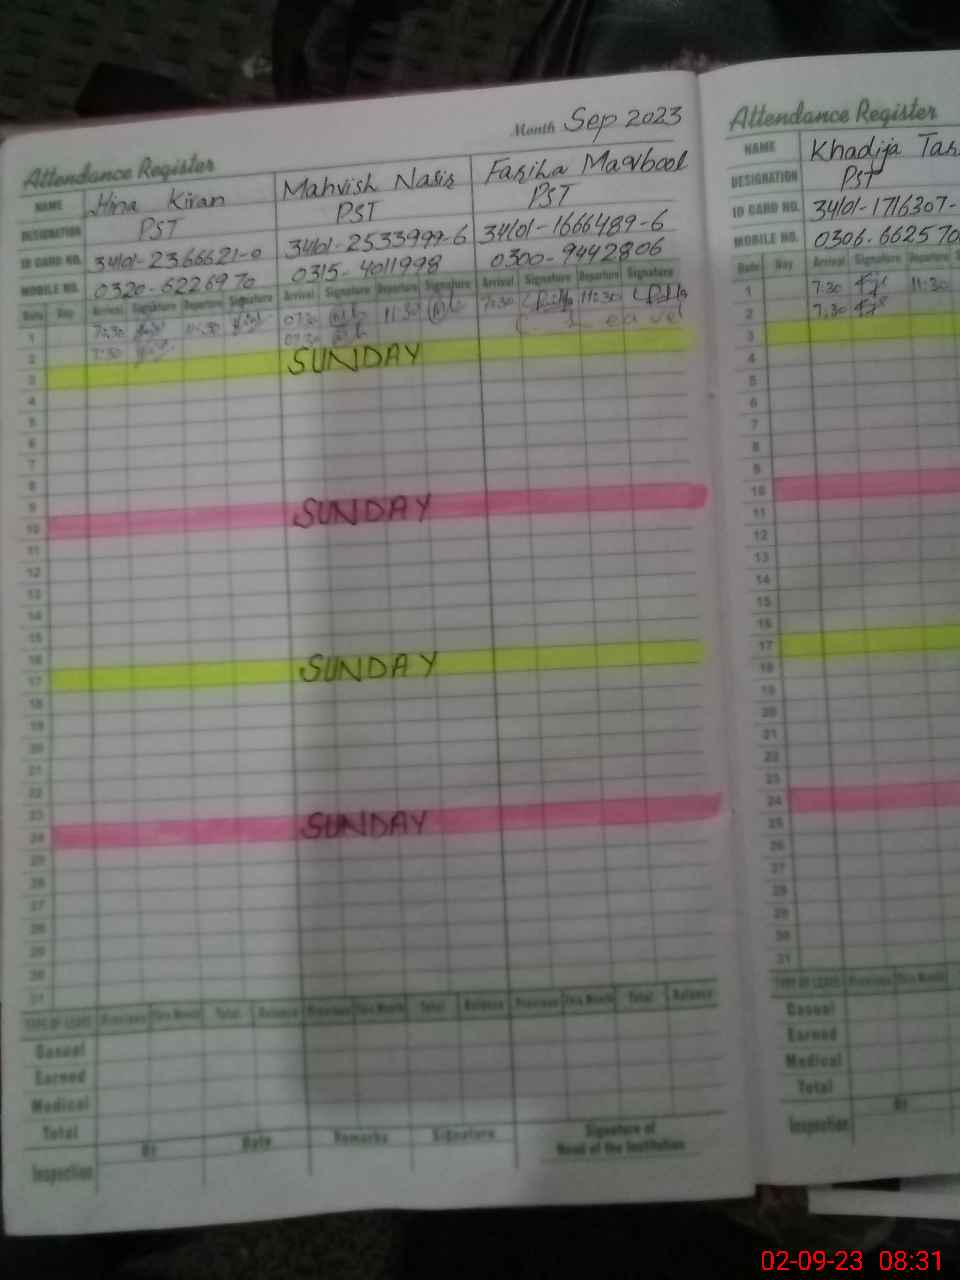 Month Sep 2023
Attendance Register
NAME Hina Kiran Mahvish Nasir Fariha Maqbool
DESIGNATION PST PST PST
ID CARD NO. 34101-2366621-0 34101-2533999-6 34101-1666489-6
MOBILE NO. 0320-6226970 0315-4011998 0300-9442806
Date Day Arrival Signature Departure Signature Arrival Signature Departure Signature Arrival Signature Departure Signature
1 7:30 11:30 07:30 11:30 7:30 11:30
2 7:30 07:30 Leave
3 SUNDAY
4
5
6
7
8
9
10 SUNDAY
11
12
13
14
15
16
17 SUNDAY
18
19
20
21
22
23
24 SUNDAY
25
26
27
28
29
30
31
TYPE OF LEAVE Previous This Month Total Balance Previous This Month Total Balance Previous This Month Total Balance
Casual
Earned
Medical
Total
Inspection By Date Remarks Signature Signature of
Head of the Institution
Attendance Register
NAME Khadija
DESIGNATION PST
ID CARD NO. 34101-1716307-
MOBILE NO. 0306-662570
Date Day Arrival Signature Departure
1 7:30 11:30
2 7:30
3
4
5
6
7
8
9
10
11
12
13
14
15
16
17
18
19
20
21
22
23
24
25
26
27
28
29
30
31
TYPE OF LEAVE Previous This Month
Casual
Earned
Medical
Total
Inspection By
02-09-23 08:31